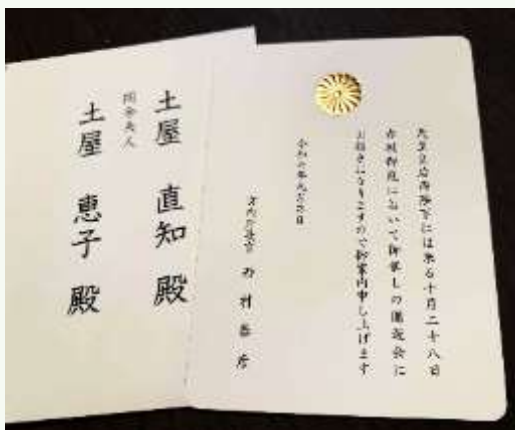 天皇皇后両陛下には来る十月二十八日
赤坂御苑において御催しの園遊会に
お招きになりますので御案内申し上げます
令和
宮内庁長官 西村泰彦
土屋 直知 殿
同令夫人
土屋 恵子 殿